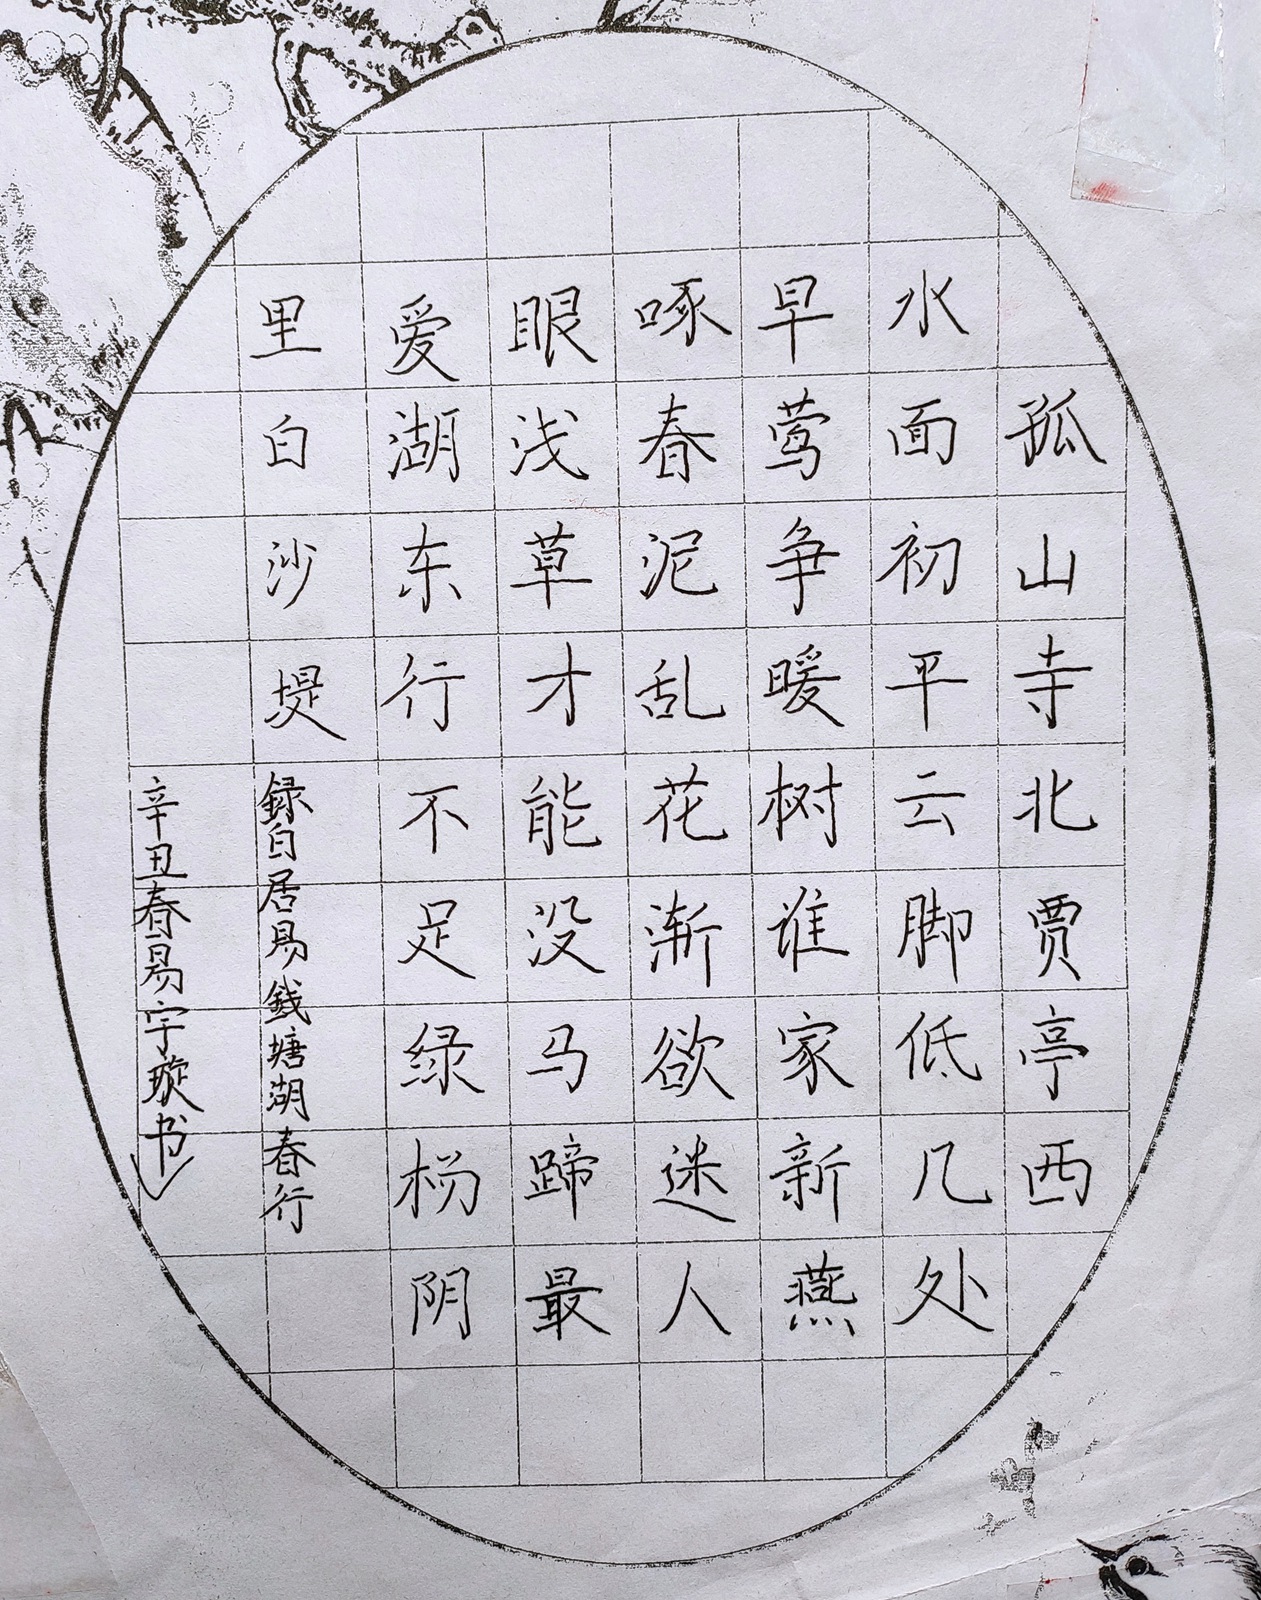 孤山寺北贾亭西
水面初平云脚低几处
早莺争暖树谁家新燕
啄春泥乱花渐欲迷人
眼浅草才能没马蹄最
爱湖东行不足绿杨阴
里白沙堤
録白居易钱塘湖春行
辛丑春易宇璇书